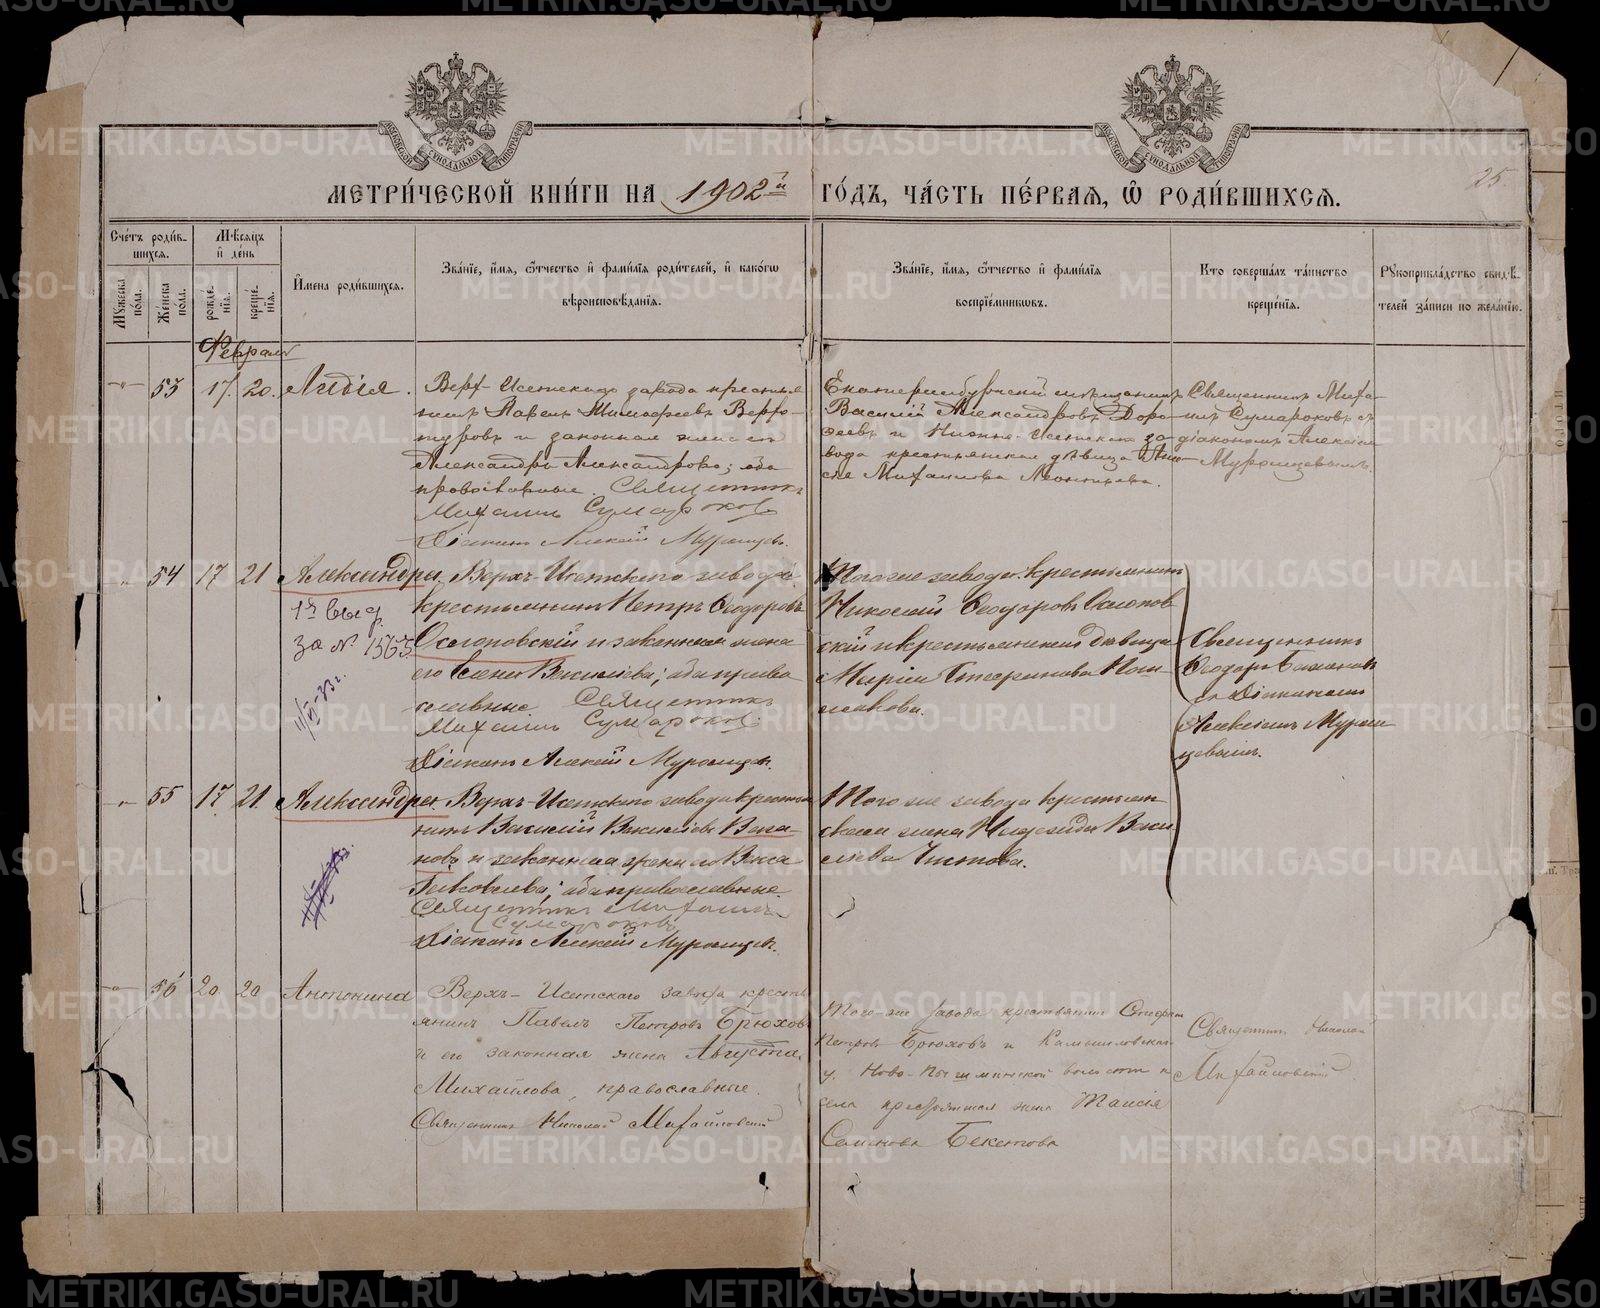 МЕТРИ́ЧЕСКОЙ КНИ́ГИ НА 1902й ГО́ДЪ, ЧА́СТЬ ПЕ́РВАЯ, Ѡ҆ РОДИ́ВШИХСѦ.
25.
Сче́тъ роди́вшихсѧ.
Мꙋ́жеска по́ла.
Же́нска по́ла.
Мѣ́сѧцъ и҆ де́нь
рожде́нїѧ.
креще́нїѧ.
И҆мена роди́вшихсѧ.
Зва́нїе, и҆́мѧ, ѻ҆́тчество и҆ фами́лїѧ роди́телей, и҆ како́гѡ
вѣроисповѣ́данїѧ.
Зва́нїе, и҆́мѧ, ѻ҆́тчество и҆ фами́лїѧ
воспрїе́мникѡвъ.
Кто соверша́лъ та́инство
креще́нїѧ.
Рꙋкоприкла́дство свидѣ́телей за́писи по жела́нїю.
Февраль
53 17. 20. Лидія.
Верх-Исетскаго завода крестья
нинъ Павелъ Верхо-
туровъ и законная жена его
Александра Александрова; оба
православные. Священникъ
Михаилъ Сумароковъ
Діаконъ Алексѣй Муромцевъ.
Екатеринбургскій мѣщанинъ
Василій Александровъ Доро-
феевъ и Нижне-Исетскаго за-
вода крестьянская дѣвица Ани-
сія Михаилова Леонтьева.
Священникъ Миха-
илъ Сумароковъ съ
діакономъ Алексѣем
Муромцевымъ.
54 17 21 Александра
1й выд.
за № 1563
Верхъ-Исетскаго завода
крестьянинъ Петръ Ѳеодоровъ
Осокоповскій и законная жена
его Елена Василіева; оба право
славные Священникъ
Михаилъ Сумароковъ.
Діаконъ Алексѣй Муромцевъ.
Того же завода крестьянинъ
Николай Ѳеодоровъ
скій и крестьянская дѣвица
Марія
Священникъ
Ѳеодоръ
съ діакономъ
Алексѣемъ Муром
цевымъ.
55 17 21 Александра
Верхъ-Исетскаго завода крестья
нинъ Василій Василіевъ Вага-
новъ и законная жена его Васса
Яковлева; оба православные
Священникъ Михаилъ
Сумароковъ
Діаконъ Алексѣй Муромцевъ.
Того же завода крестьян
ская жена Надежда Васи
ліева Чистова.
56 20 20 Антонина
Верхъ-Исетскаго завода кресть
янинъ Павелъ Петровъ Брюхов
и его законная жена Августа
Михаилова, православные.
Священникъ Николай Михайловскій
Того-же завода крестьянин Стефан
Петров Брюховъ и Камышловскаго
у. Ново-Пышминской волости и
села крестьянская жена Таисія
Семенова Бекетова
Священник Николай
Михайловскій
METRIKI.GASO-URAL.RU